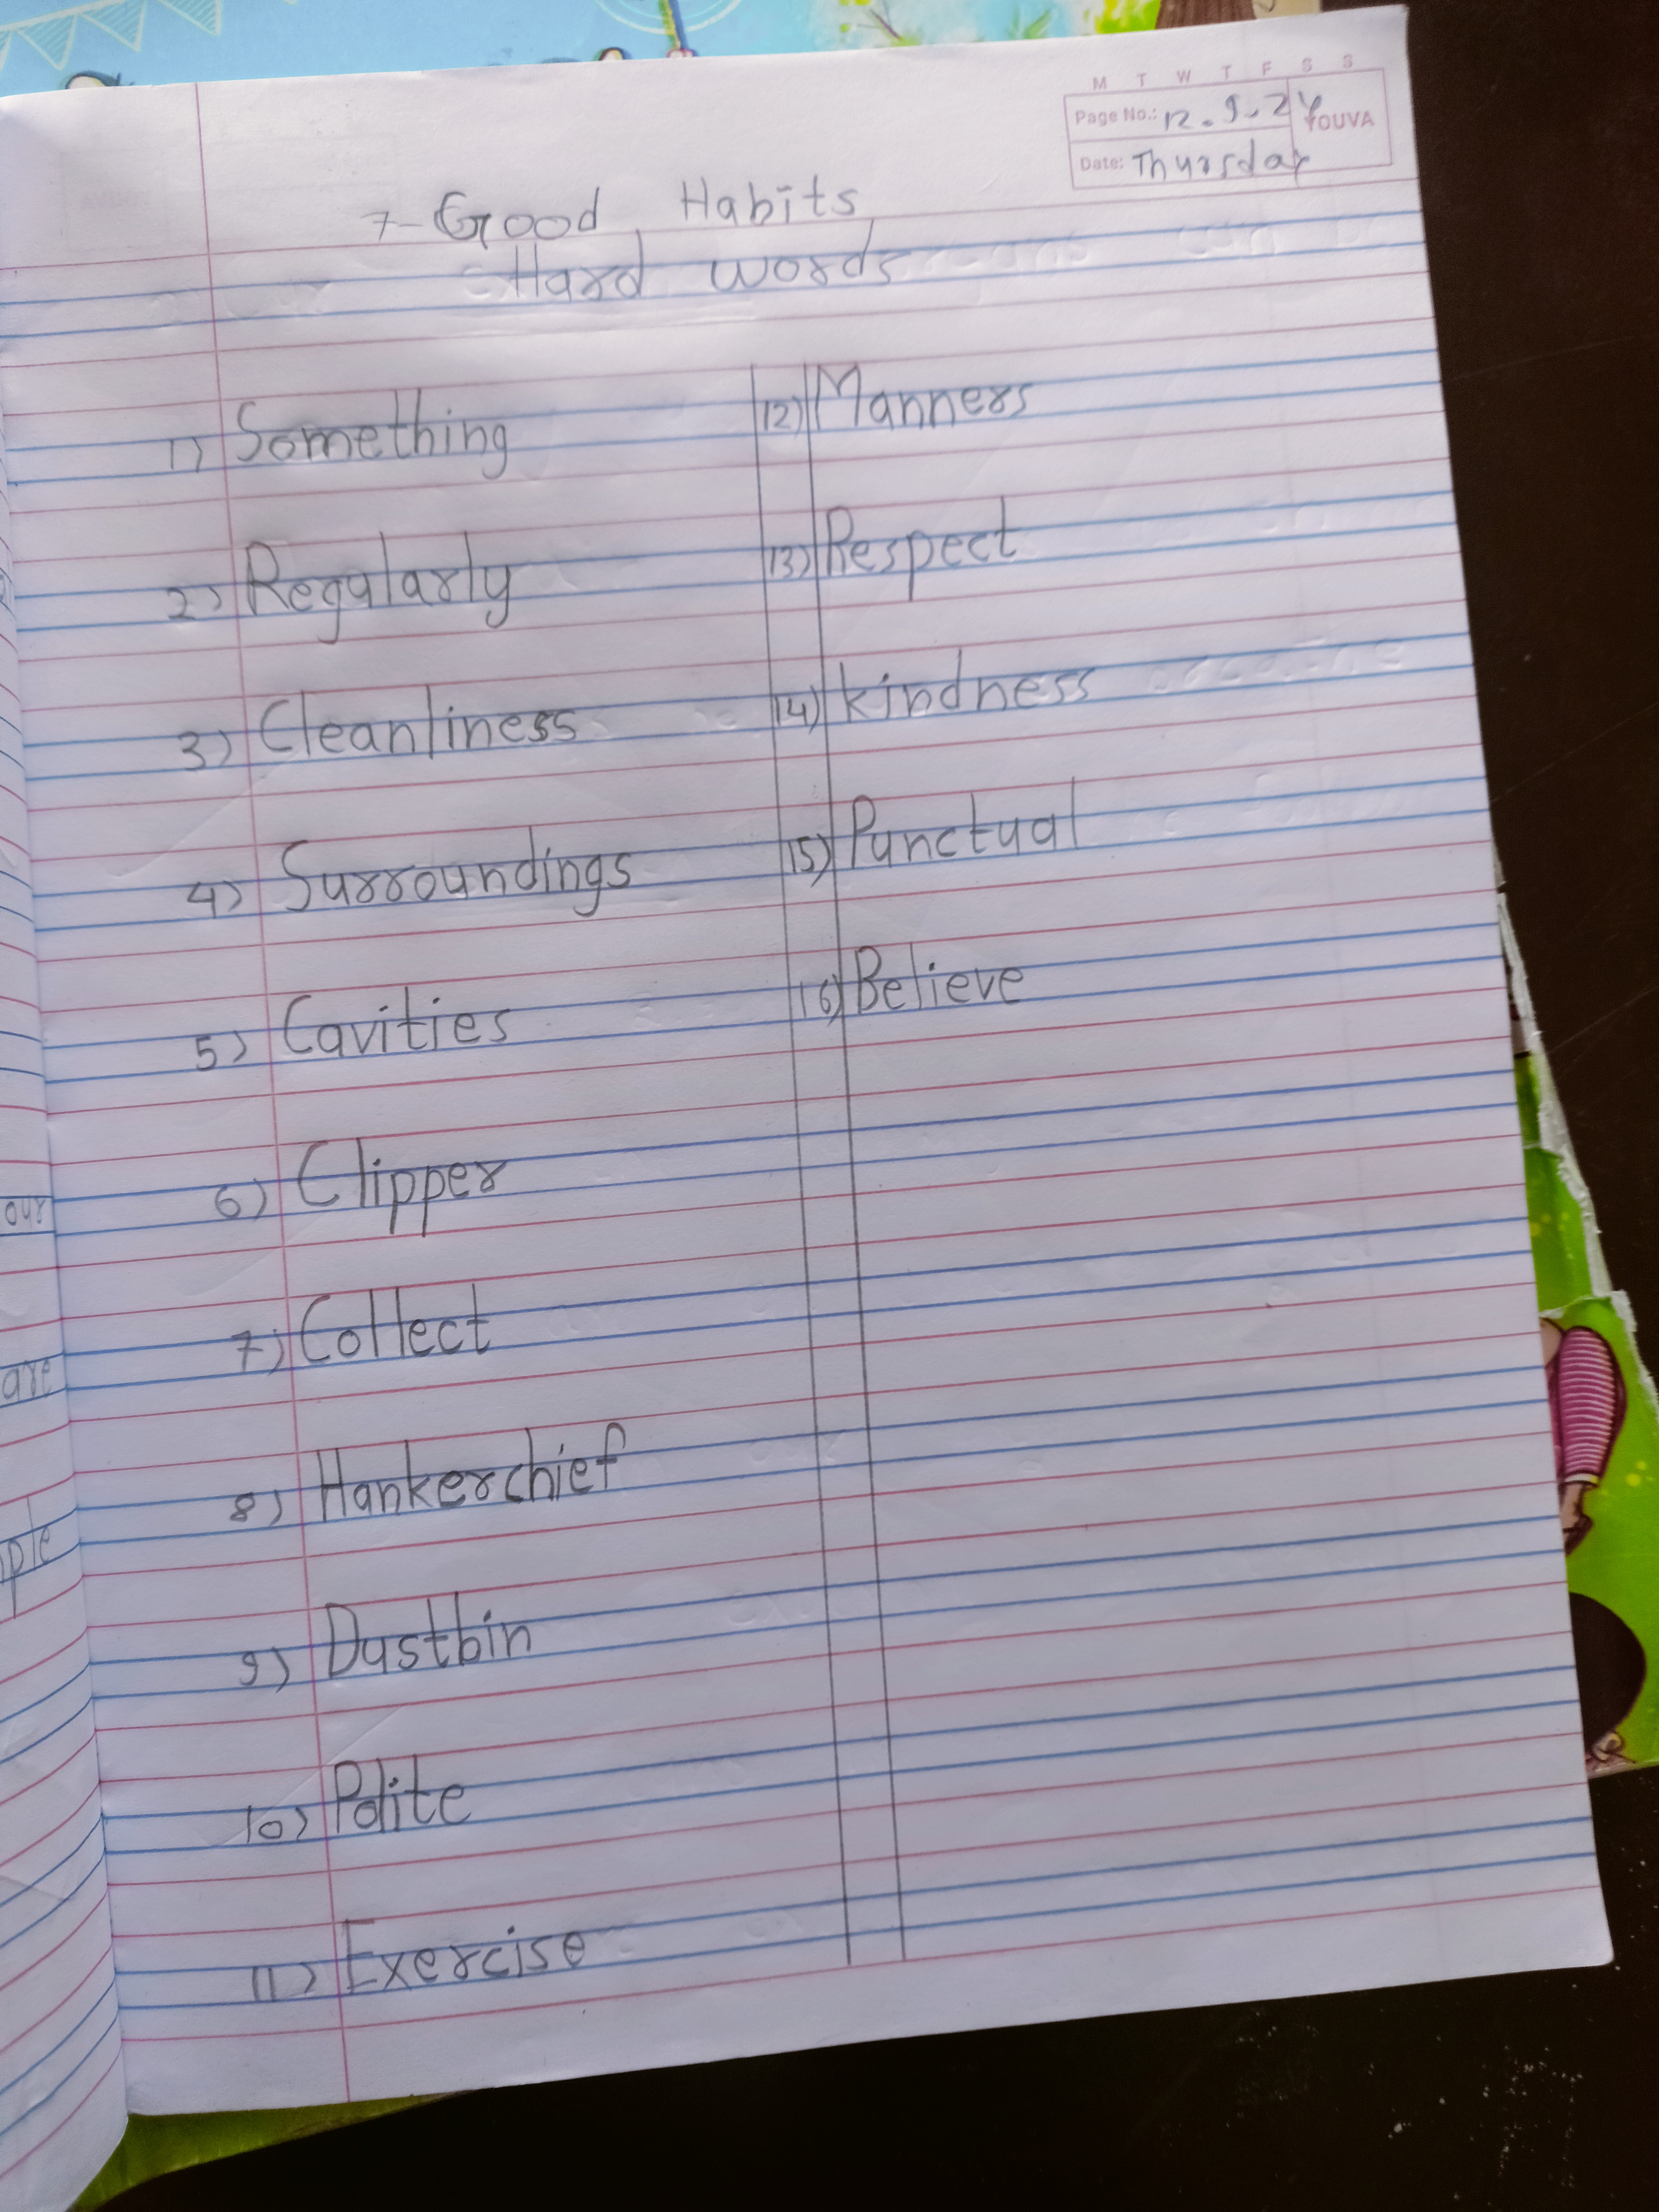 M T W T F S S
Page No.: 12.9.24
YOUVA
Date: Thursday
7-Good Habits
Hard words
1) Something
2) Regularly
3) Cleanliness
4) Surroundings
5) Cavities
6) Clipper
7) Collect
8) Hankerchief
9) Dustbin
10) Polite
11) Exercise
12) Manners
13) Respect
14) kindness
15) Punctual
16) Believe
our
are
ple